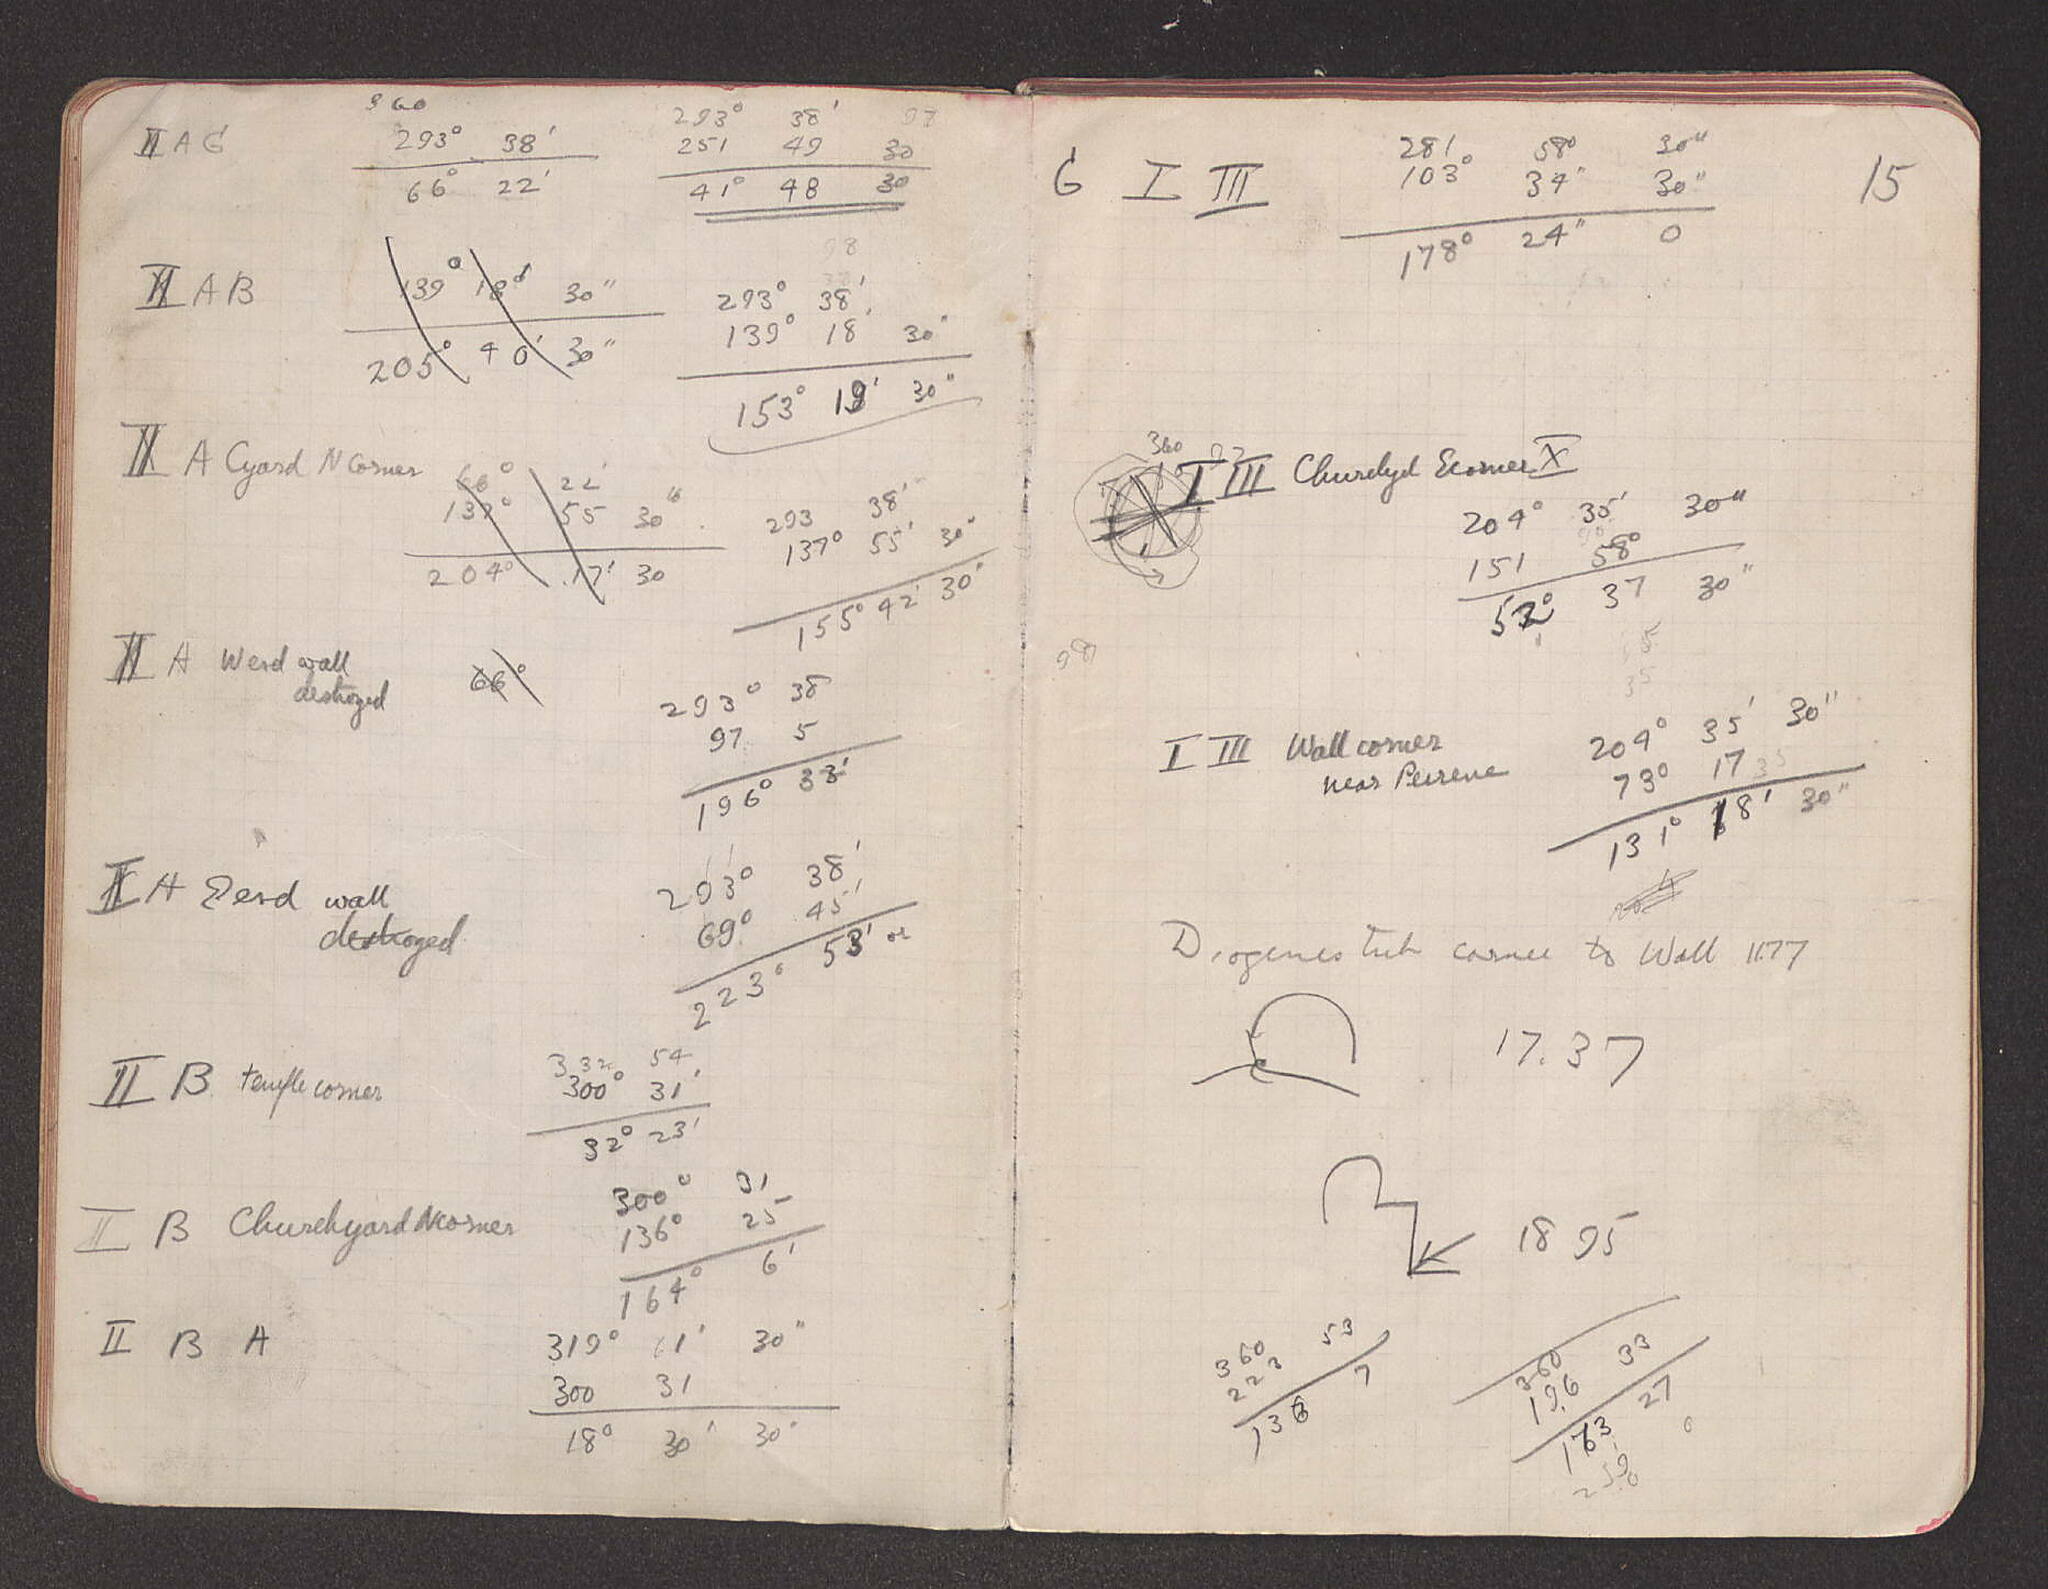 II A G
360
293° 38'
66° 22'
293° 38'
251 49 30
41° 48 30
II A B
139° 18' 30"
205° 40' 30"
293° 38'
139° 18' 30"
153° 19' 30"
II A Cyard N corner
66° 22'
137° 55 30"
204° 17' 30
293 38'
137° 55' 30"
155° 42' 30"
II A W end wall
destroyed
66°
293° 38
97 5
196° 33'
II A E end wall
destroyed
293° 38'
69° 45'
223° 53' or
II B temple corner
332 54
300° 31'
32° 23'
II B Churchyard N corner
300° 31
136° 25
164° 6'
II B A
319° 1' 30"
300 31
18° 30' 30"
15
G I III
281 58° 30"
103° 34" 30"
178° 24" 0
360
I III Churchyd E corner X
204° 35' 30"
151 58°
52° 37 30"
98
I III Wall corner
near Peirene
204° 35' 30"
73° 17
131° 18' 30"
Diogenes tub corner to Wall 11.77
17.37
18 95
360
223 53
136 7
360
196 33
163 27